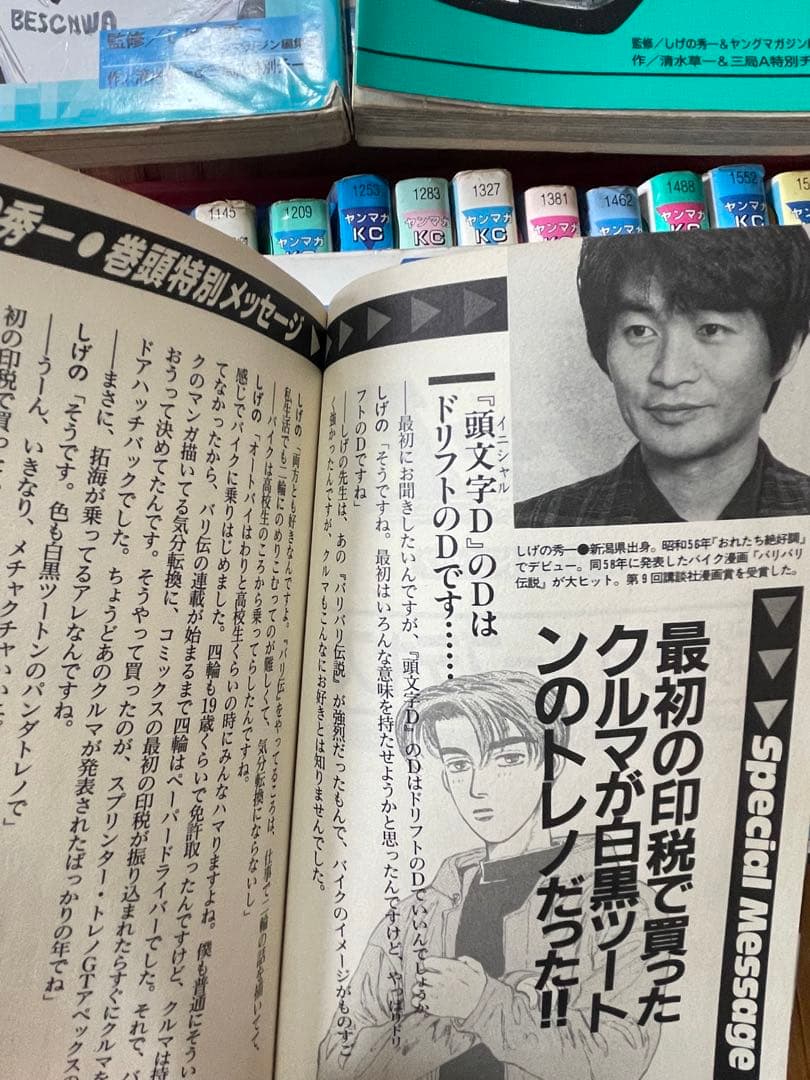 BESCNWA
監修/しげの秀一
作/清水草一&三局A特別チー
監修/しげの秀一&ヤングマガジン
作/清水草一&三局A特別チ
1145
1209
1253
1283
1327
1381
1462
1488
1552
ヤンマガ
KC
ヤンマガ
KC
ヤンマガ
KC
ヤンマガ
KC
ヤンマガ
KC
ヤンマガ
KC
ヤンマガ
KC
ヤンマガ
KC
秀一●巻頭特別メッセージ
Special Message
最初の印税で買った
クルマが白黒ツート
ンのトレノだった!!
しげの秀一●新潟県出身。昭和56年「おれたち絶好調」
でデビュー。同58年に発表したバイク漫画「バリバリ
伝説」が大ヒット。第9回講談社漫画賞を受賞した。
イニシャル
『頭文字D』のDは
ドリフトのDです……
──最初にお聞きしたいんですが、『頭文字D』のDはドリフトのDでいいんでしょうか。
しげの「そうですね。最初はいろんな意味を持たせようかと思ったんですけど、やっぱりドリ
フトのDですね」
──しげの先生は、あの『バリバリ伝説』が強烈だったもんで、バイクのイメージがものすご
く強かったんですが、クルマもこんなにお好きとは知りませんでした。
しげの「両方とも好きなんですよ。『バリ伝』をやってるころは、仕事で二輪の話を描いてて、
私生活でも二輪にのめりこむってのが難しくて、気分転換にならないし」
──バイクは高校生のころから乗ってらしたんですね。
しげの「オートバイはわりと高校生くらいの時にみんなハマりますよね。僕も普通にそうい
感じでバイクに乗りはじめました。四輪も19歳くらいで免許取ったんですけど、クルマは持
てなかったから、バリ伝の連載が始まるまで四輪はペーパードライバーでした。それで、バ
クのマンガ描いてる気分転換に、コミックスの最初の印税が振り込まれたらすぐにクルマを
おうって決めてたんです。そうやって買ったのが、スプリンター・トレノGTアペックスの
ドアハッチバックでした。ちょうどあのクルマが発表されたばっかりの年でね」
──まさに、拓海が乗ってるアレなんですね。
しげの「そうです。色も白黒ツートンのパンダトレノで」
──うーん、いきなり、メチャクチャ
初の印税で買っ